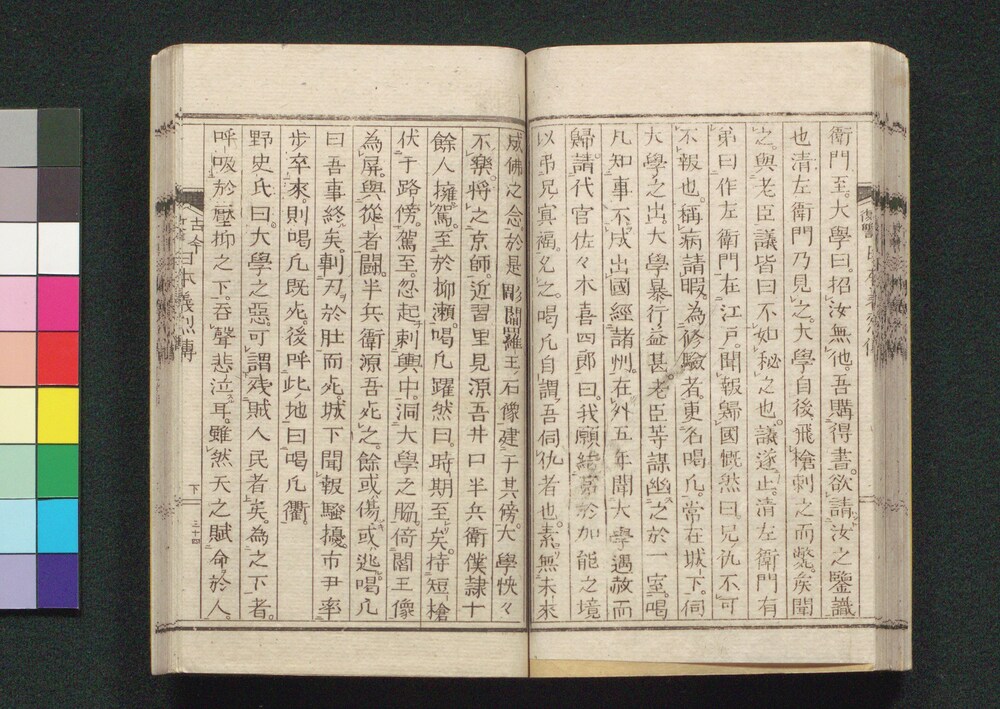 衛門至。大學曰。招汝無他。吾購得畫。欲請汝之鑒識
也。清左衛門乃見之。大學自後飛槍刺之而斃。矣聞
之。與老臣議皆曰不如秘之也。議遂止。清左衛門有
弟曰作左衛門在江戸。聞報歸國慨然曰兄仇不可
不報也。稱病請暇。為修驗者。更名喝凡。常在城下。伺
大學之出。大學暴行益甚。老臣等謀幽之於一室。喝
凡知事不成出國經諸州。在外五年聞大學遇赦而
歸。請代官佐々木喜四郎曰。我願結菴於加能之境
以弔兄冥福。名之。喝凡自謂吾伺仇者也。素無未來
成佛之念。於是彫閻羅王石像建于其傍。大學怏々
不樂。將之京師。近習里見源吾井口半兵衛僕隷十
餘人擁駕。至於柳瀬。喝凡躍然曰。時期至矣。持短槍
伏于路傍。駕至。忽起刺輿中。洞大學之脇。倚閻王像
為屏。與從者闘。半兵衛源吾死之。餘或傷或逃。喝凡
曰吾事終矣。剚刃於肚而死。城下聞報騷擾。市尹率
步卒來。則喝凡既死後呼此地曰喝凡衢。
野史氏曰。大學之惡。可謂残賊人民者矣。為之下者。
呼吸於壓抑之下。吞聲悲泣耳。雖然天之賦命於人。
古今日本義烈傳
下
三十四